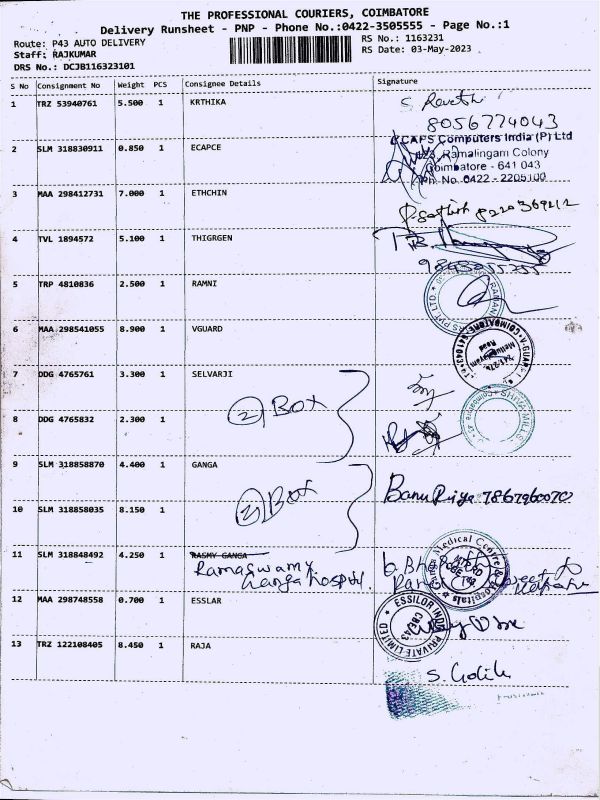 THE PROFESSIONAL COURIERS, COIMBATORE
Delivery Runsheet - PNP - Phone No.:0422-3505555 - Page No.:1
Route: P43 AUTO DELIVERY
RS No.: 1163231
Staff: RAJKUMAR
RS Date: 03-May-2023
DRS No.: DCJB116323101
S No Consignment No Weight PCS Consignee Details Signature
1 TRZ 53940761 5.500 1 KRTHIKA
8056774043
2 SLM 318830911 0.850 1 ECAPCE
CAPS Computers India (P) Ltd
Ramalingam Colony
Coimbatore - 641 043
Ph No. 0422 - 2205100
3 MAA 298412731 7.000 1 ETHCHIN
4 TVL 1894572 5.100 1 THIGRGEN
5 TRP 4810836 2.500 1 RAMNI
6 MAA 298541055 8.900 1 VGUARD
7 DDG 4765761 3.300 1 SELVARJI
2 BOX
8 DDG 4765832 2.300 1
SHIVA MILLS
9 SLM 318858870 4.400 1 GANGA
Banu Priya 7867960070
3 BOX
10 SLM 318858035 8.150 1
11 SLM 318848492 4.250 1 RASMY GANGA
Ramaswamy
Ganga hospital
Medical Centre & Hospitals
12 MAA 298748558 0.700 1 ESSLAR
ESSILOR INDIA PRIVATE LIMITED
CBE-43
13 TRZ 122108405 8.450 1 RAJA